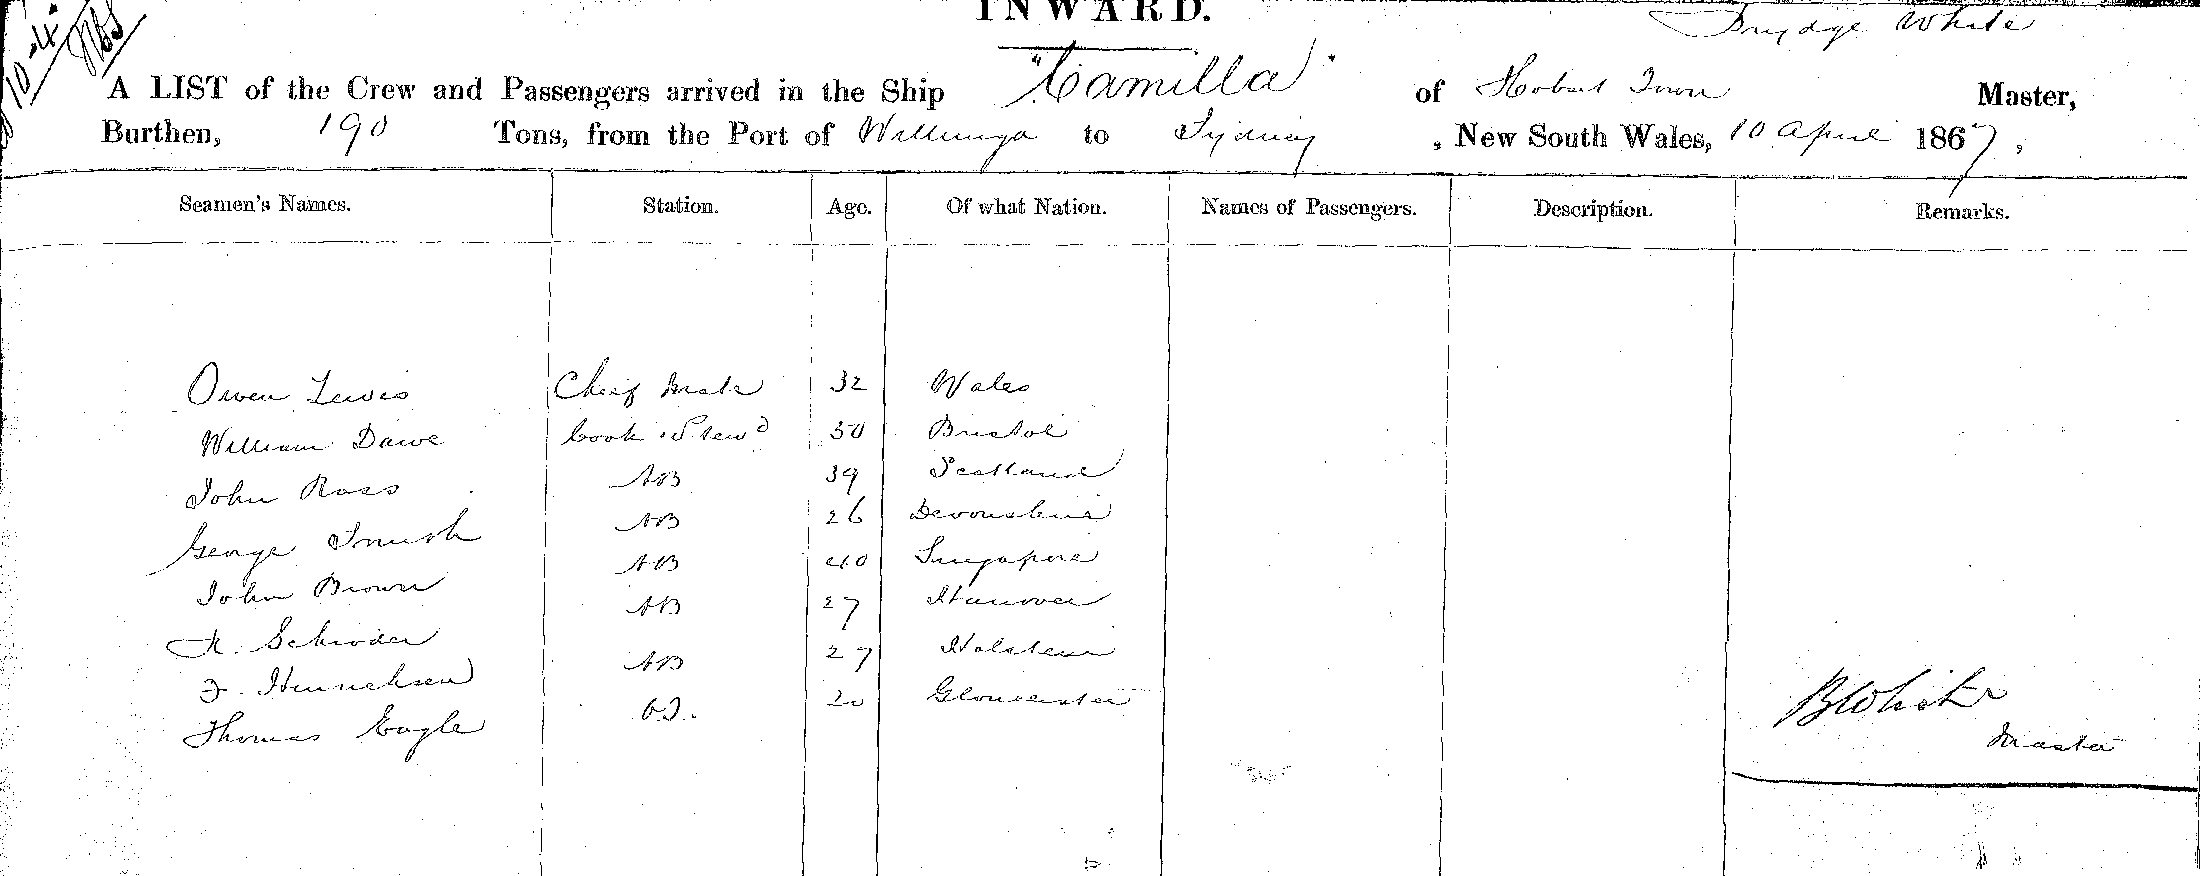 INWARD.
White
A LIST of the Crew and Passengers arrived in the Ship "Camilla" of Hobart Town Master,
Burthen, 190 Tons, from the Port of Willunga to Sydney, New South Wales, 10 April 1867,
Seamen's Names. Station. Age. Of what Nation. Names of Passengers. Description. Remarks.
Owen Lewis Cheif Mate 32 Wales
William Dawe Cook & Stewd 50 Bristol
John Ross AB 39 Scotland
George Smith AB 26 Devonshire
John Brown AB 40 Singapore
Schroder AB 27 Hanover
F. Hinrichsen AB 27 Holstein
Thomas Eagle OS. 20 Gloucester
B White
Master